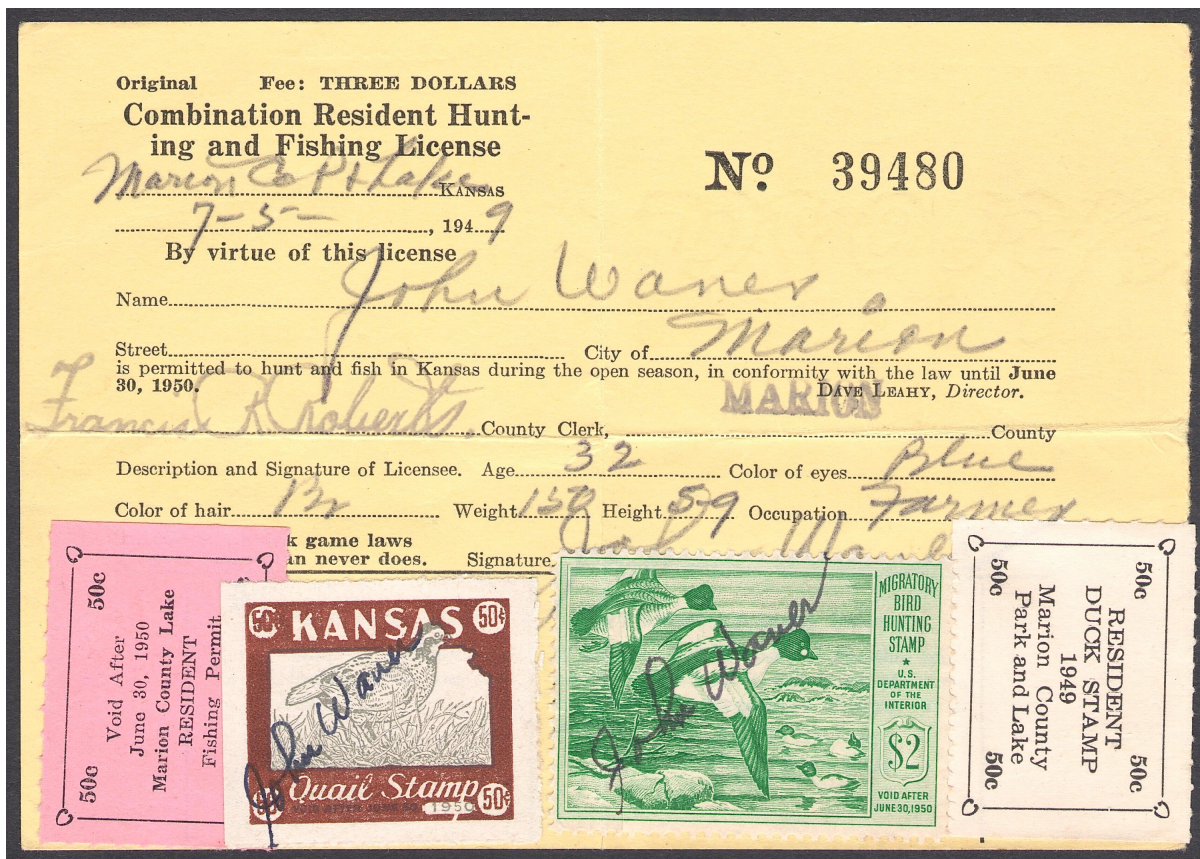 Original Fee: THREE DOLLARS
Combination Resident Hunt-
ing and Fishing License
Nº 39480
Marion Co Pk & Lake KANSAS
7-5- , 1949
By virtue of this license
Name John Waner
Street City of Marion
is permitted to hunt and fish in Kansas during the open season, in conformity with the law until June
30, 1950. DAVE LEAHY, Director.
Francis R Roberts. County Clerk, MARION County
Description and Signature of Licensee. Age 32 Color of eyes Blue
Color of hair Br Weight 150 Height 59 Occupation Farmer
k game laws
an never does. Signature John Waner
50c 50c
Void After
June 30, 1950
Marion County Lake
RESIDENT
Fishing Permit
50¢ KANSAS 50¢
John Waner
Quail Stamp
VOID AFTER JUNE 30, 1950 50¢
MIGRATORY
BIRD
HUNTING
STAMP
U.S.
DEPARTMENT
OF THE
INTERIOR
$2
VOID AFTER
JUNE 30, 1950
John Waner
50c 50c
RESIDENT
DUCK STAMP
1949
Marion County
Park and Lake
50c 50c